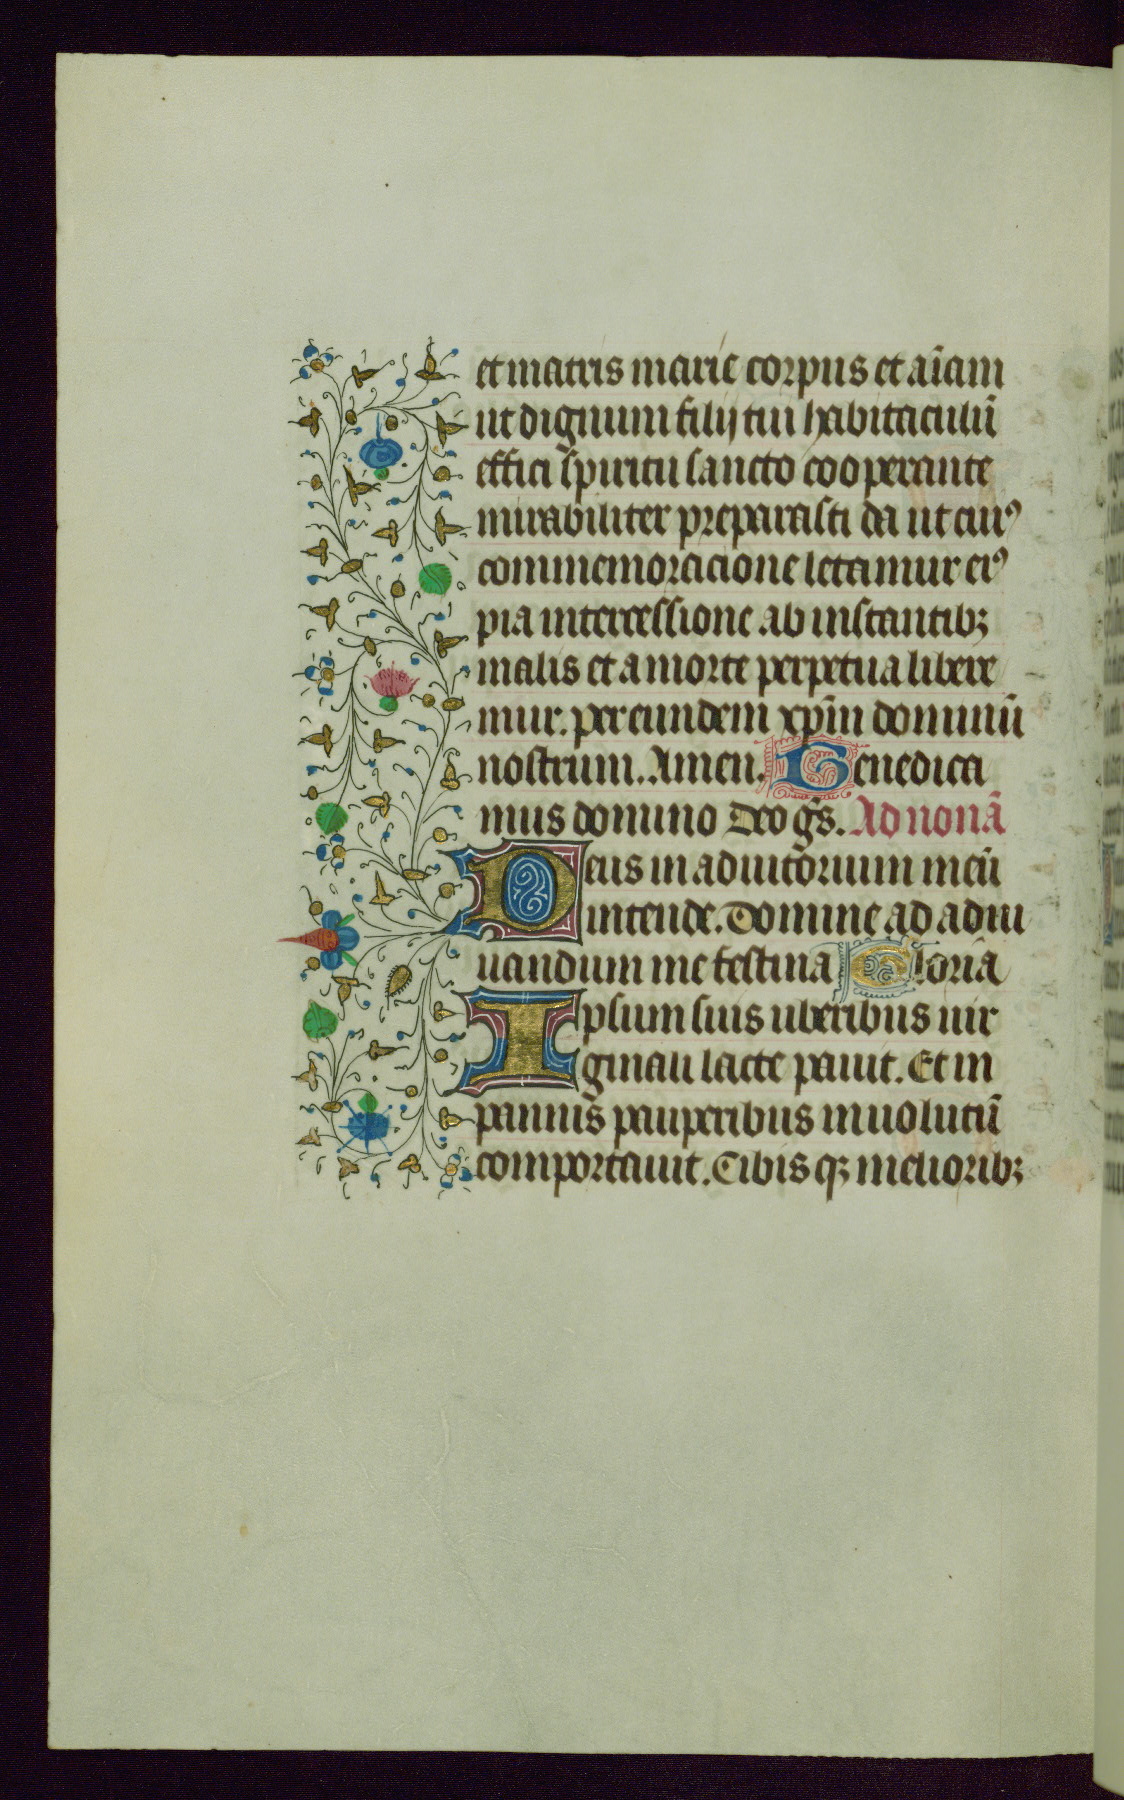 et matris marie corpus et aīam
ut dignum filij tui habitaculū
effici spiritu sancto cooperante
mirabiliter preparasti da ut cuiꝰ
commemoracione letamur eiꝰ
pia intercessione ab instantibꝫ
malis et a morte perpetua libere
mur. per eundem xp̄m dominū
nostrum. Amen. Benedica
mus domino Deo gr̄s. Ad nonā
Deus in adiutorium meū
intende. Domine ad adiu
uandum me festina Gloria
Ipsum suis uberibus uir
ginali lacte pauit. Et in
pannis pauperibus inuolutū
comportauit. Cibis qꝫ melioribꝫ